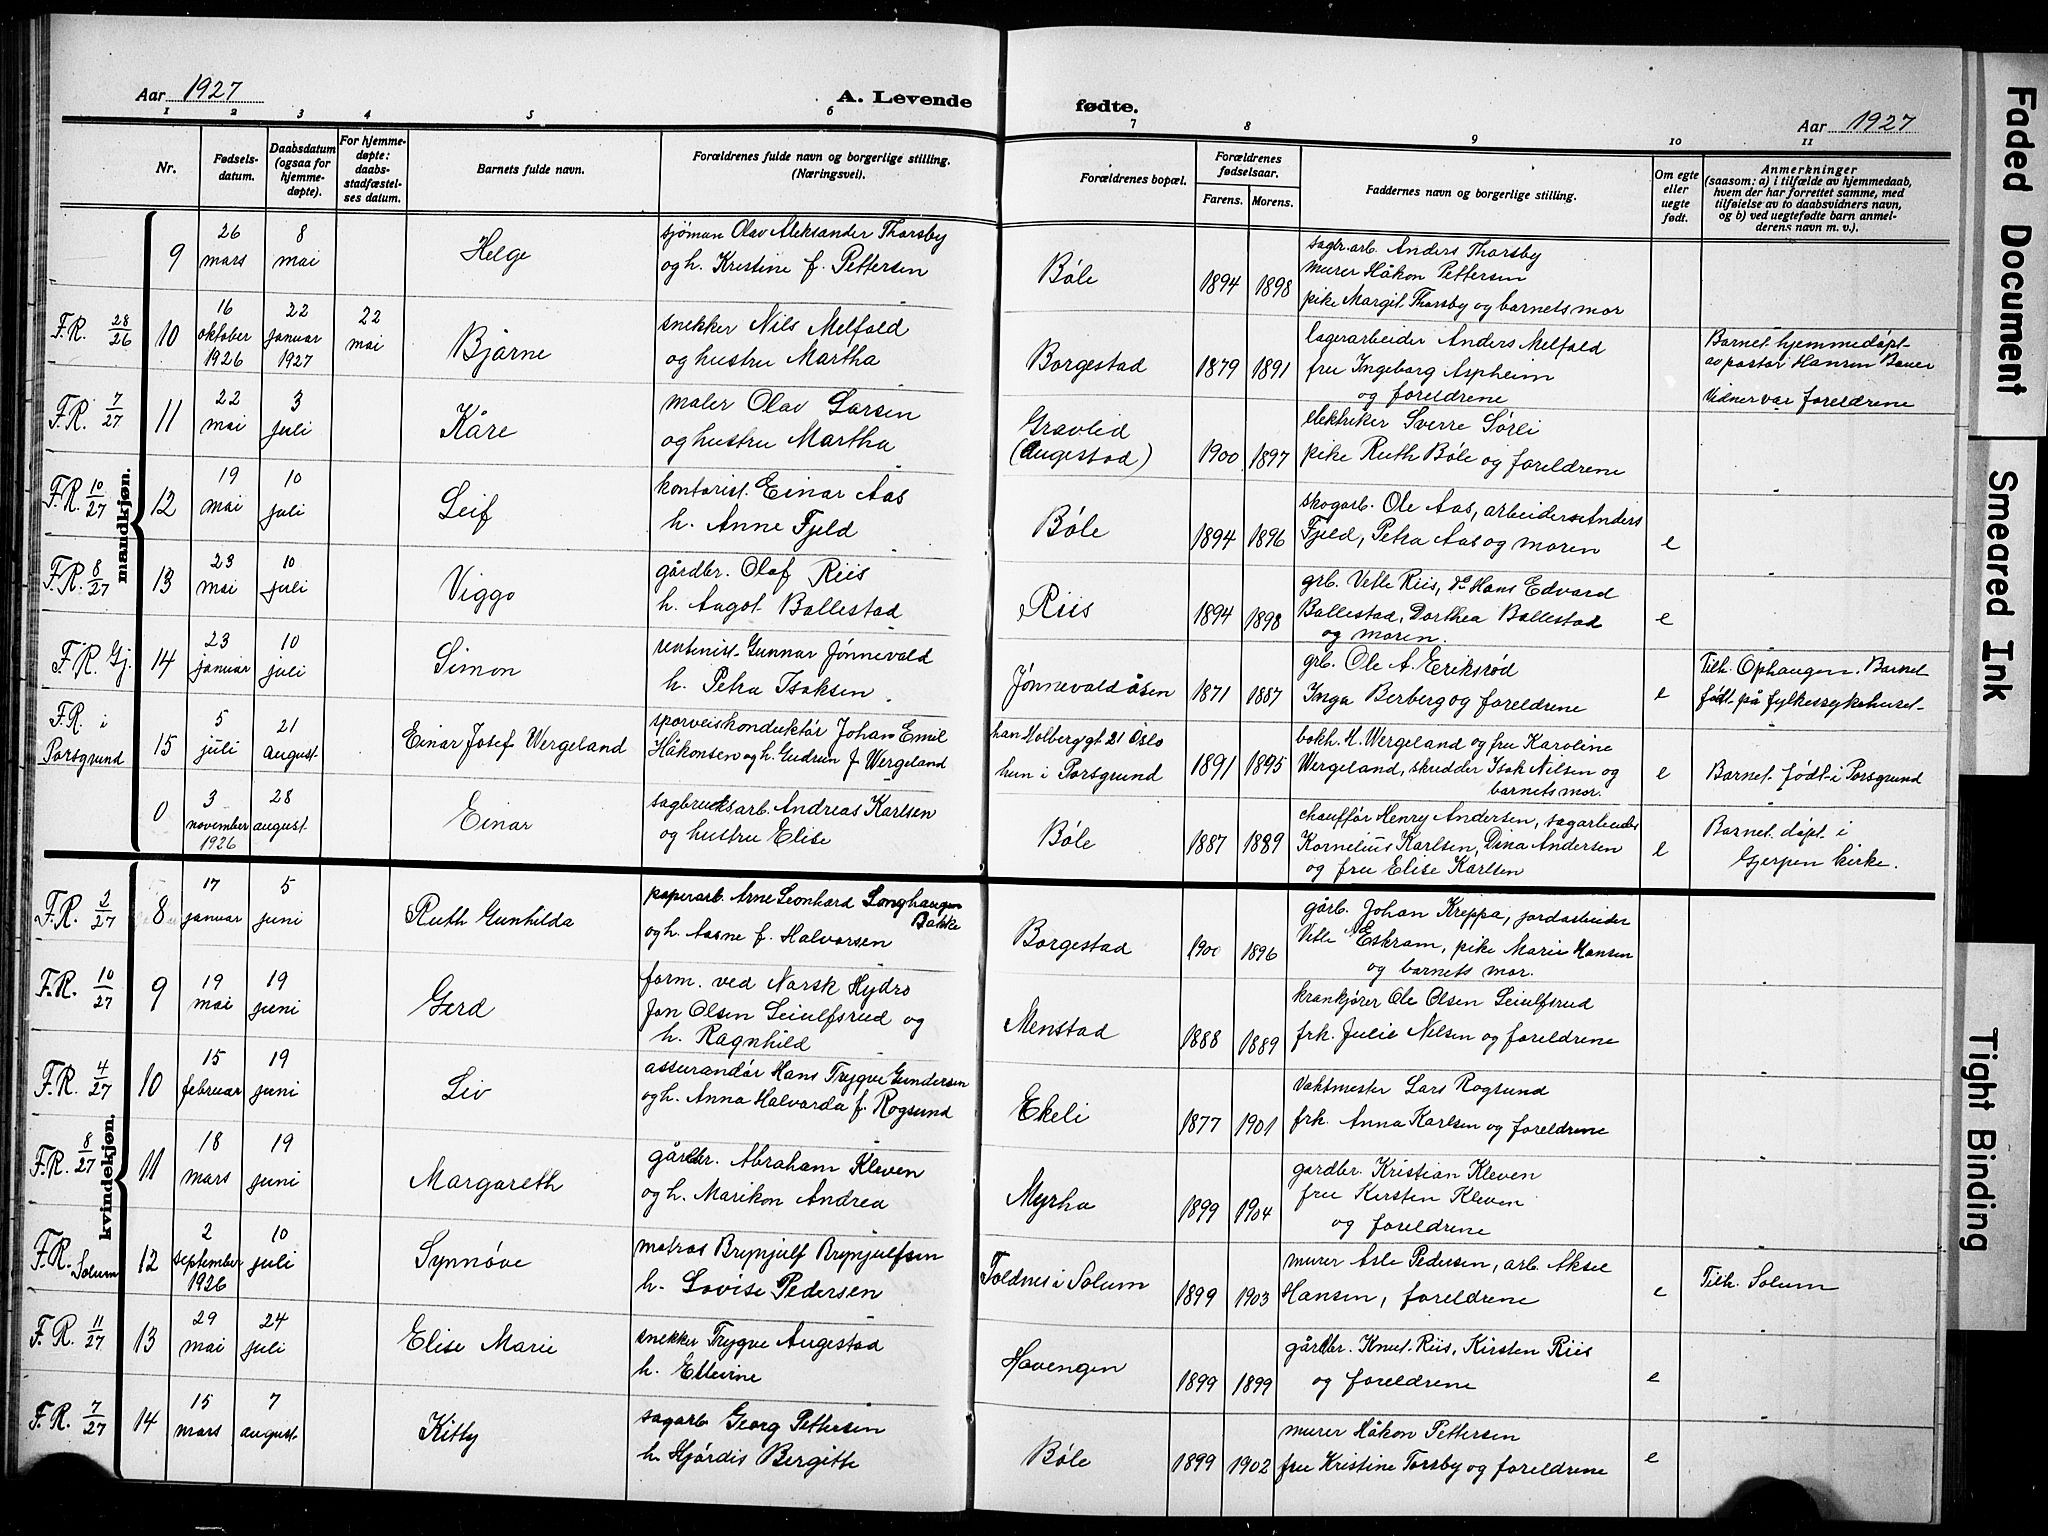 Aar 1927
A. Levende
fødte.
Aar 1927
1 2 3 4 5 6 7 8 9 10 11
Nr.
Fødsels-
datum.
Daabsdatum
(ogsaa for
hjemme-
døpte).
For hjemme-
døpte:
daabs-
stadfæstel-
ses datum.
Barnets fulde navn.
Forældrenes fulde navn og borgerlige stilling.
(Næringsvei).
Forældrenes bopæl.
Forældrenes
fødselsaar.
Farens. Morens.
Faddernes navn og borgerlige stilling.
Om egte
eller
uegte
født.
Anmerkninger
(saasom: a) i tilfælde av hjemmedaab,
hvem der har forrettet samme, med
tilføielse av to daabsvidners navn,
og b) ved uegtefødte barn anmel-
derens navn m. v.).
mandkjøn.
9
26
mars
8
mai
Helge
sjömann Olav Aleksander Thorsby
og h. Kristine f. Pettersen
Bøle
1894 1898
sagbr.arb. Anders Thorsby
murer Håkon Pettersen
pike Margit Thorsby og barnets mor
F.R. 28/26
10
16
oktober
1926
22
januar
1927
22
mai
Bjarne
snekker Nils Melfald
og hustru Martha
Borgestad
1879 1891
lagerarbeider Anders Melfald
fru Ingeborg Aspheim
og foreldrene
Barnet hjemmedøpt
av pastor Hansen Bauer
Vidner var foreldrene
F.R. 7/27
11
22
mai
3
juli
Kåre
maler Olav Larsen
og hustru Martha
Gravlid
(Augestad)
1900 1897
elektriker Sverre Sørli
pike Ruth Bøle og foreldrene
F.R. 10/27
12
19
mai
10
juli
Leif
kontorist Einar Aas
h. Anne Fjeld
Bøle
1894 1896
skogarb. Ole Aas, arbeider Anders
Fjeld, Petra Aas og moren
e
F.R. 8/27
13
23
mai
10
juli
Viggo
gårdbr. Olaf Riis
h. Angot Ballestad
Riis
1894 1898
grb. Vetle Riis, do Hans Edvard
Ballestad, Dorthea Ballestad
og moren.
e
F.R. Gj.
14
23
januar
10
juli
Simon
rentenist Gunnar Jønnevald
h. Petra Isaksen
Jønnevaldåsen
1871 1887
grb. Ole A. Eriksrød
Inga Berberg og foreldrene
e
Tilh. Ophaugen. Barnet
født på fylkessykehuset
F.R. i
Porsgrund
15
5
juli
21
august
Einar Josef Wergeland
sporveiskonduktør Johan Emil
Håkonsen og h. Gudrun f. Wergeland
han Holberg gt 21 Oslo
hun i Porsgrund
1891 1895
bokh. H. Wergeland og fru Karoline
Wergeland, skredder Isak Nilsen og
barnets mor.
e
Barnet født i Porsgrund
0
3
november
1926
28
august
Einar
sagbruksarb. Andreas Karlsen
og hustru Elise
Bøle
1887 1889
chauffør Henry Andersen, sagarbeider
Kornelius Karlsen, Dina Andersen
og fru Elise Karlsen
e
Barnet døpt i
Gjerpen kirke.
kvindekjøn.
F.R. 2/27
8
17
januar
5
juni
Ruth Gunhilda
papirarb. Arne Leonhard Longhaugen
Bakke
og h. Aasne f. Halvorsen
Borgestad
1900 1896
gårb. Johan Kreppa, jordarbeider
Vetle Eskram, pike Marie Hansen
og barnets mor.
F.R. 10/27
9
19
mai
19
juni
Gerd
form. ved Norsk Hydro
Jon Olsen Leiulfsrud og
h. Ragnhild
Menstad
1888 1889
krankjører Ole Olsen Leiulfsrud
frk. Julie Nilsen og foreldrene
F.R. 4/27
10
15
februar
19
juni
Liv
assurandør Hans Trygve Gundersen
og h. Anna Halvarda f. Rogsund
Ekeli
1877 1901
Vaktmester Lars Rogsund
frk. Anna Karlsen og foreldrene
F.R. 8/27
11
18
mars
19
juni
Margareth
gårdbr. Abraham Kleven
og h. Marikon Andrea
Myrha
1899 1904
gardbr. Kristian Kleven
fru Kirsten Kleven
og foreldrene
F.R. Solum
12
2
september
1926
10
juli
Synnøve
matros Brynjulf Brynjulfsen
h. Lovise Pedersen
Toldnes i Solum
1899 1903
murer Asle Pedersen, arb. Aksel
Hansen, foreldrene
e
Tilh. Solum
F.R. 11/27
13
29
mai
24
juli
Elise Marie
snekker Trygve Augestad
h. Ellevine
Hovengen
1899 1899
gårdbr. Knut Riis, Kirsten Riis
og foreldrene
e
F.R. 7/27
14
15
mars
7
august
Kitty
sagarb. Georg Pettersen
h. Hjørdis Bergitte
Bøle
1899 1902
murer Håkon Pettersen
fru Kristine Torsby og foreldrene
e
Faded Document
Smeared Ink
Tight Binding